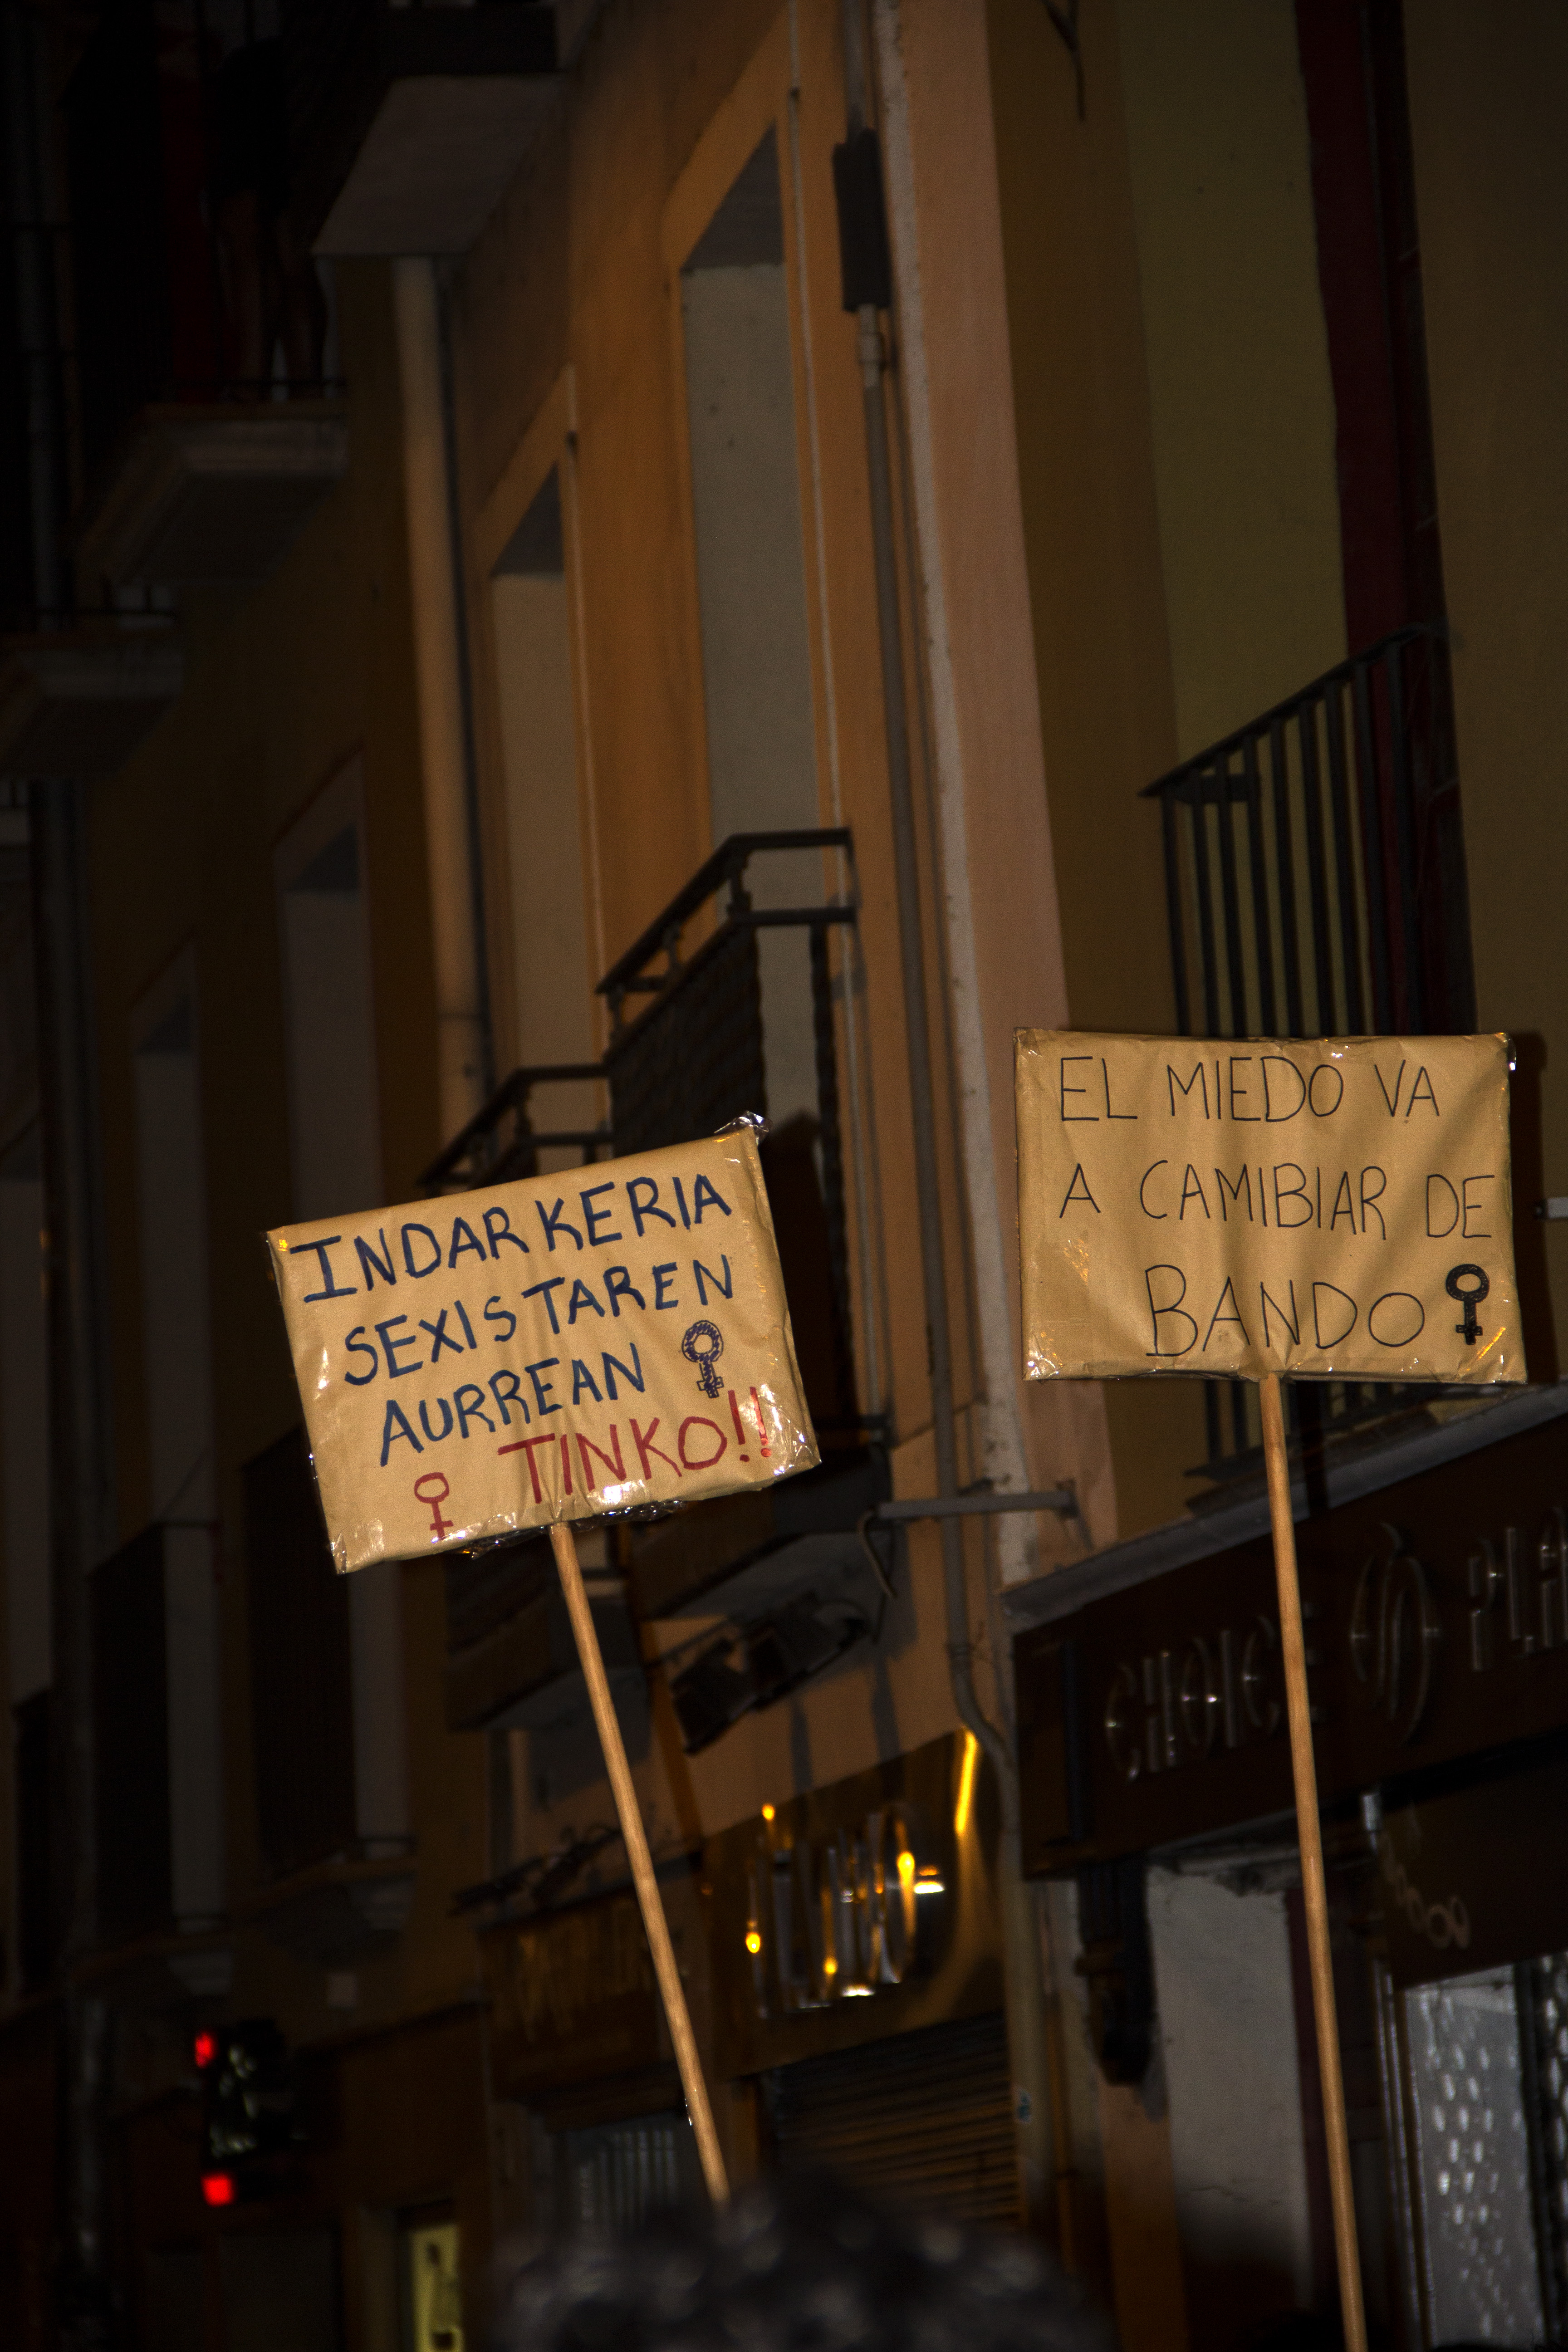 INDARKERIA
SEXISTAREN
AURREAN
TINKO!!
EL MIEDO VA
A CAMIBIAR DE
BANDO
CHOICE